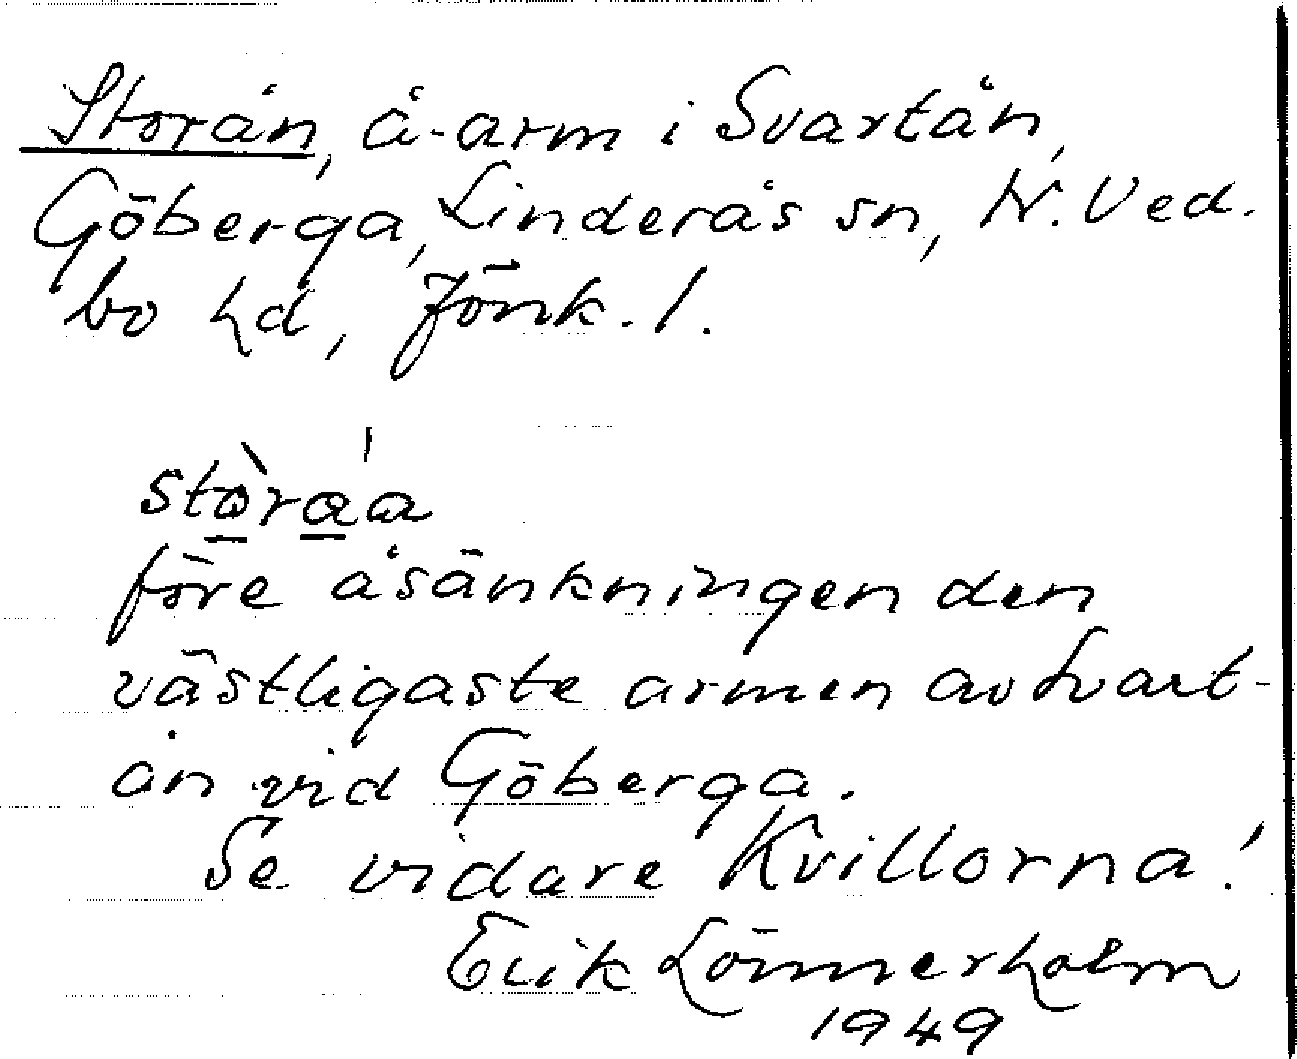 Storån, å-arm i Svartån,
Göberga, Linderås sn, N. Ved-
bo hd, Jönk. l.
stòraá
före åsänkningen den
västligaste armen av Svart-
ån vid Göberga.
Se vidare Kvillorna!
Erik Lönnerholm
1949